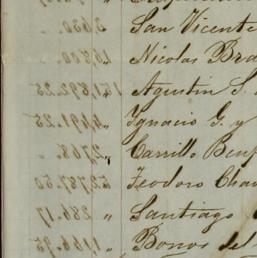 2,650. " San Vicente
16,800. " Nicolas Bra
" Agustin S.
4,491.25 " Ignacio G. y
2,768. " Carrillo
52,787.50 " Teodoro Chav
286.17 " Santiago
1,166.95 " Bonos del